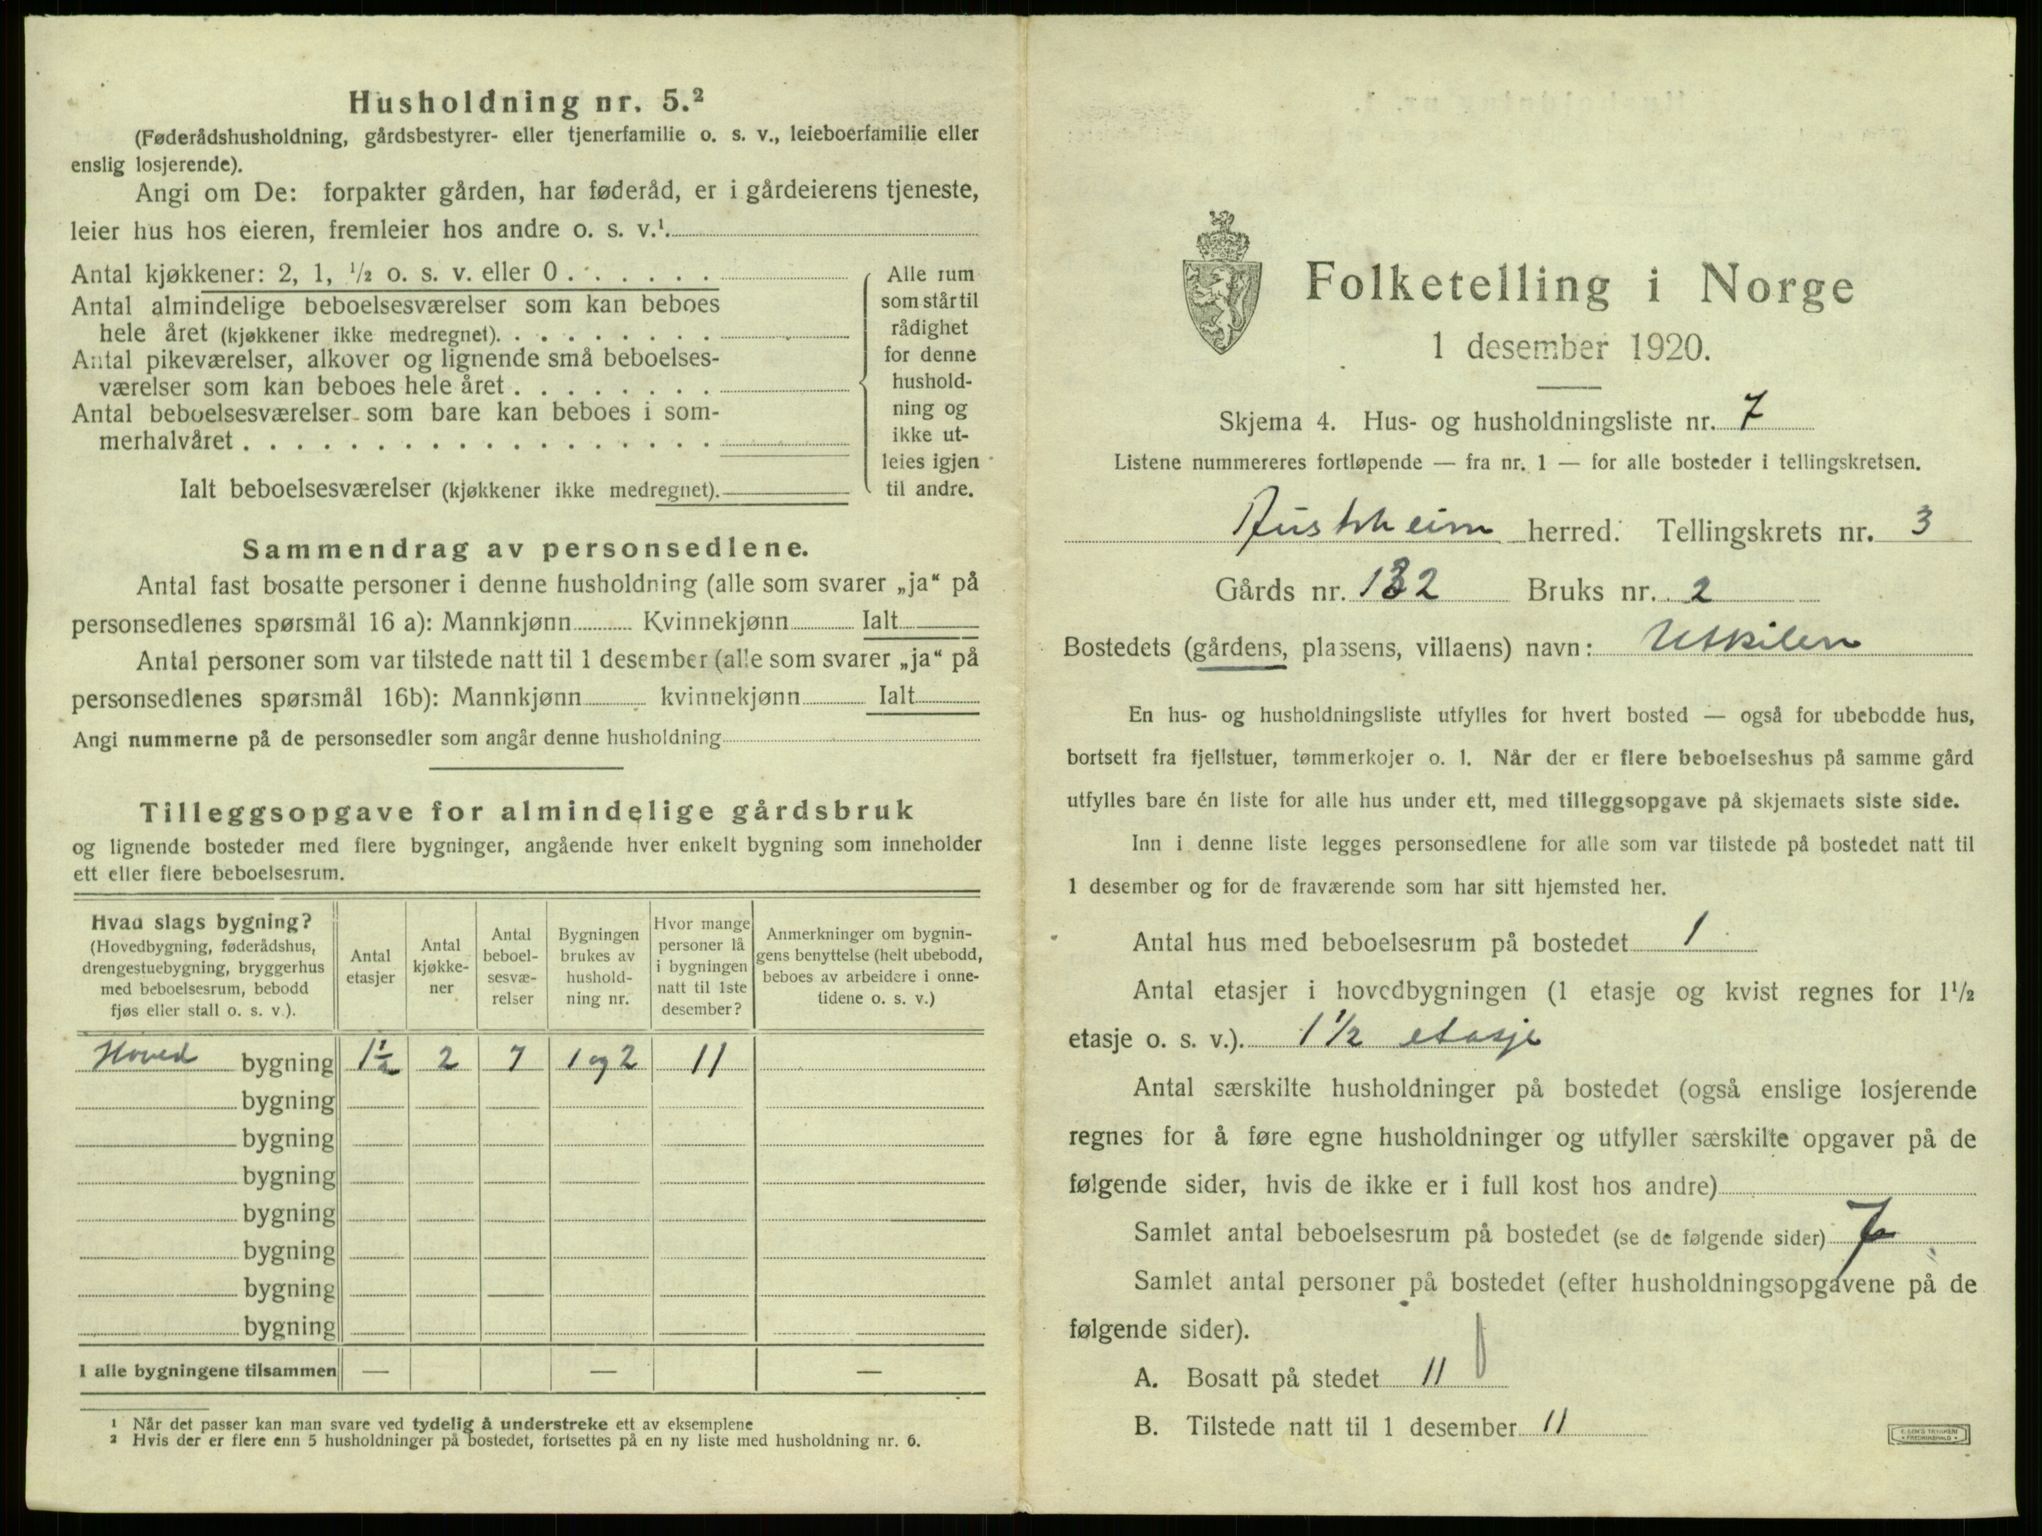 Husholdning nr. 5.²
(Føderådshusholdning, gårdsbestyrer- eller tjenerfamilie o. s. v., leieboerfamilie eller
enslig losjerende).
Angi om De: forpakter gården, har føderåd, er i gårdeierens tjeneste,
leier hus hos eieren, fremleier hos andre o. s. v.¹
Antal kjøkkener: 2, 1, ¹/₂ o. s. v. eller 0 . . . . . .
Antal almindelige beboelsesværelser som kan beboes
hele året (kjøkkener ikke medregnet). . . . . . . . .
Antal pikeværelser, alkover og lignende små beboelses-
værelser som kan beboes hele året . . . . . . . .
Antal beboelsesværelser som bare kan beboes i som-
merhalvåret . . . . . . . . . . . . . . . . . .
Ialt beboelsesværelser (kjøkkener ikke medregnet).
Alle rum
som står til
rådighet
for denne
hushold-
ning og
ikke ut-
leies igjen
til andre.
Sammendrag av personsedlene.
Antal fast bosatte personer i denne husholdning (alle som svarer „ja“ på
personsedlenes spørsmål 16 a): Mannkjønn Kvinnekjønn Ialt
Antal personer som var tilstede natt til 1 desember (alle som svarer „ja“ på
personsedlenes spørsmål 16b): Mannkjønn kvinnekjønn Ialt
Angi nummerne på de personsedler som angår denne husholdning
Tilleggsopgave for almindelige gårdsbruk
og lignende bosteder med flere bygninger, angående hver enkelt bygning som inneholder
ett eller flere beboelsesrum.
Hvad slags bygning?
(Hovedbygning, føderådshus,
drengestuebygning, bryggerhus
med beboelsesrum, bebodd
fjøs eller stall o. s. v.).
Antal
etasjer
Antal
kjøkke-
ner
Antal
beboel-
sesvæ-
relser
Bygningen
brukes av
hushold-
ning nr.
Hvor mange
personer lå
i bygningen
natt til 1ste
desember?
Anmerkninger om bygnin-
gens benyttelse (helt ubebodd,
beboes av arbeidere i onne-
tidene o. s. v.)
Hoved bygning 1½ 2 7 1 og 2 11
bygning
bygning
bygning
bygning
bygning
bygning
bygning
I alle bygningene tilsammen — — —
¹ Når det passer kan man svare ved tydelig å understreke ett av eksemplene
² Hvis der er flere enn 5 husholdninger på bostedet, fortsettes på en ny liste med husholdning nr. 6.
Folketelling i Norge
1 desember 1920.
Skjema 4. Hus- og husholdningsliste nr. 7
Listene nummereres fortløpende — fra nr. 1 — for alle bosteder i tellingskretsen.
Austrheim herred. Tellingskrets nr. 3
Gårds nr. 132 Bruks nr. 2
Bostedets (gårdens, plassens, villaens) navn: Utkilen
En hus- og husholdningsliste utfylles for hvert bosted — også for ubebodde hus,
bortsett fra fjellstuer, tømmerkojer o. l. Når der er flere beboelseshus på samme gård
utfylles bare én liste for alle hus under ett, med tilleggsopgave på skjemaets siste side.
Inn i denne liste legges personsedlene for alle som var tilstede på bostedet natt til
1 desember og for de fraværende som har sitt hjemsted her.
Antal hus med beboelsesrum på bostedet 1
Antal etasjer i hovedbygningen (1 etasje og kvist regnes for 1¹/₂
etasje o. s. v.). 1½ etasje
Antal særskilte husholdninger på bostedet (også enslige losjerende
regnes for å føre egne husholdninger og utfyller særskilte opgaver på de
følgende sider, hvis de ikke er i full kost hos andre)
Samlet antal beboelsesrum på bostedet (se de følgende sider) 7
Samlet antal personer på bostedet (efter husholdningsopgavene på de
følgende sider).
A. Bosatt på stedet 11
B. Tilstede natt til 1 desember 11